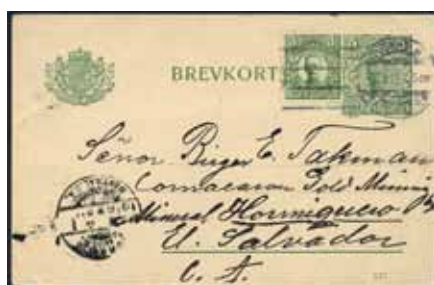 BREVKORT
Señor Birger E. Takman
Comacaran Gold Mining
Mineral Hormiguero
El Salvador
C. A.